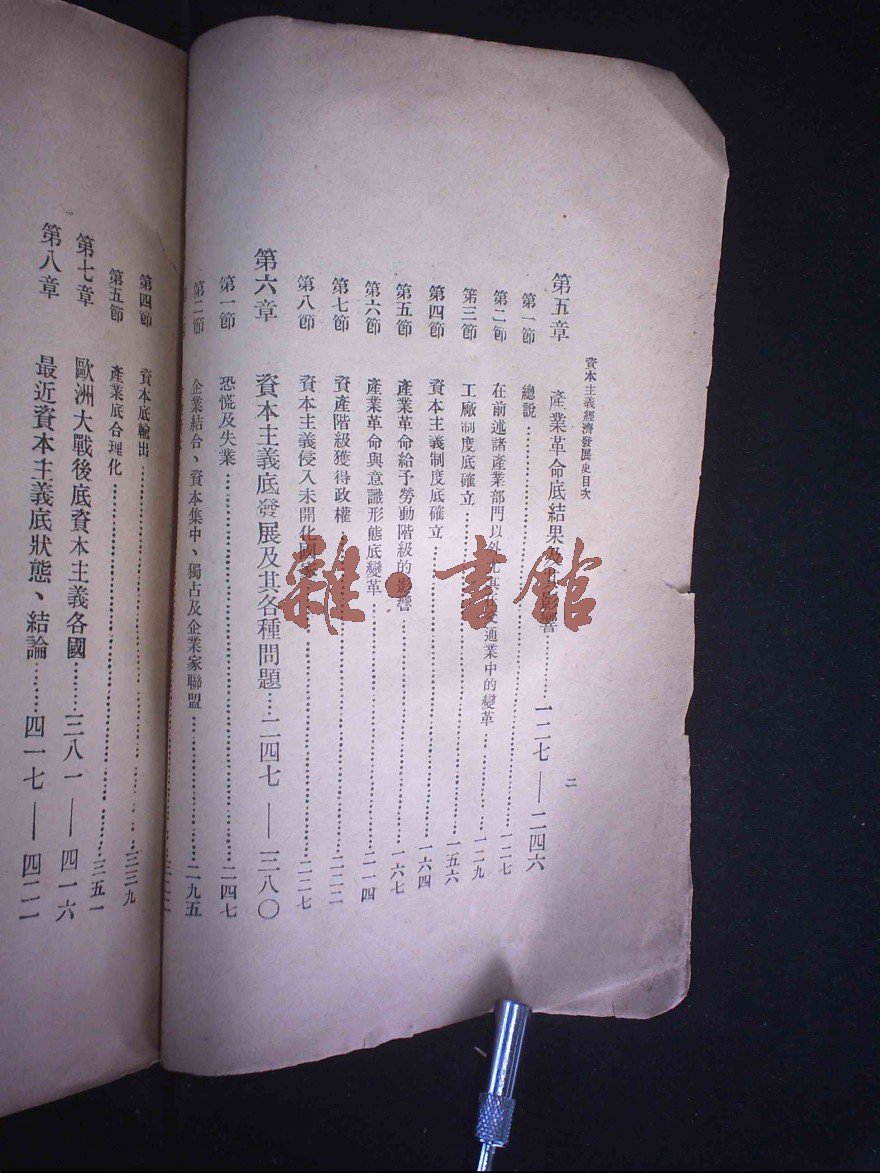 資本主義經濟發展史目次
二
第五章 產業革命底結果及其影響……一二七——二四六
第一節 總說……一二七
第二節 在前述諸產業部門以外 通業中的變革……一二九
第三節 工廠制度底確立……一五六
第四節 資本主義制度底確立……一六四
第五節 產業革命給予勞動階級的影響……一六七
第六節 產業革命與意識形態底變革……二一四
第七節 資產階級獲得政權……二二二
第八節 資本主義侵入未開化國家……二二七
第六章 資本主義底發展及其各種問題…二四七——三八〇
第一節 恐慌及失業……二四七
第二節 企業結合、資本集中、獨占及企業家聯盟……二九五
第四節 資本底輸出……三三九
第五節 產業底合理化……三五一
第七章 歐洲大戰後底資本主義各國……三八一——四一六
第八章 最近資本主義底狀態、結論……四一七——四二二
雜·書館